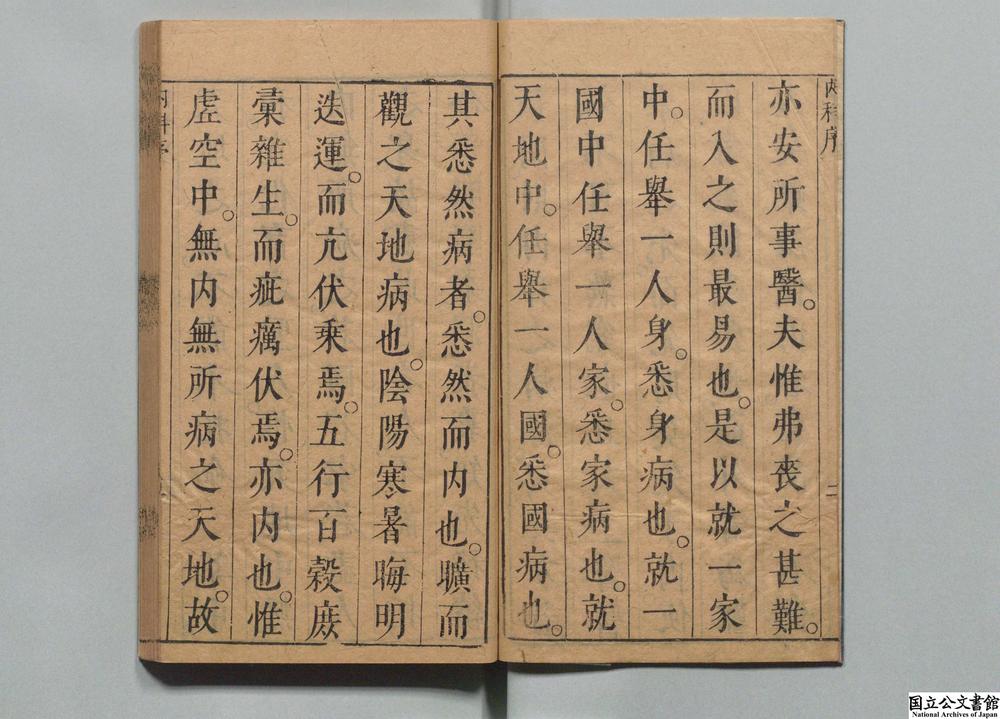 内科序
亦安所事醫。夫惟弗喪之甚難。
而入之則最易也。是以就一家
中。任舉一人身。悉身病也。就一
國中任舉一人家。悉家病也。就
天地中。任舉一人國。悉國病也。
其悉然病者。悉然而内也。曠而
觀之天地病也。陰陽寒暑晦明
迭運。而亢伏乘焉。五行百穀庶
彙雜生。而疵癘伏焉。亦内也。惟
虛空中。無内無所病之天地。故
国立公文書館
National Archives of Japan